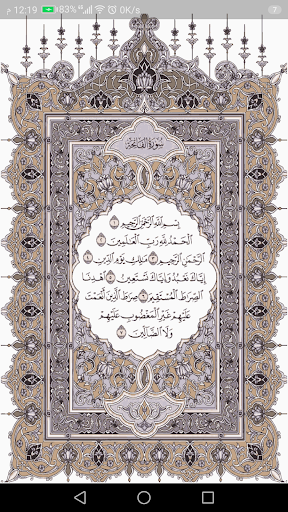 12:19 م 83% 0K/s 7
سُورَةُ الْفَاتِحَةِ
بِسْمِ اللَّهِ الرَّحْمَٰنِ الرَّحِيمِ ١
الْحَمْدُ لِلَّهِ رَبِّ الْعَالَمِينَ ٢
الرَّحْمَٰنِ الرَّحِيمِ ٣ مَالِكِ يَوْمِ الدِّينِ ٤
إِيَّاكَ نَعْبُدُ وَإِيَّاكَ نَسْتَعِينُ ٥ اهْدِنَا
الصِّرَاطَ الْمُسْتَقِيمَ ٦ صِرَاطَ الَّذِينَ أَنْعَمْتَ
عَلَيْهِمْ غَيْرِ الْمَغْضُوبِ عَلَيْهِمْ
وَلَا الضَّالِّينَ ٧